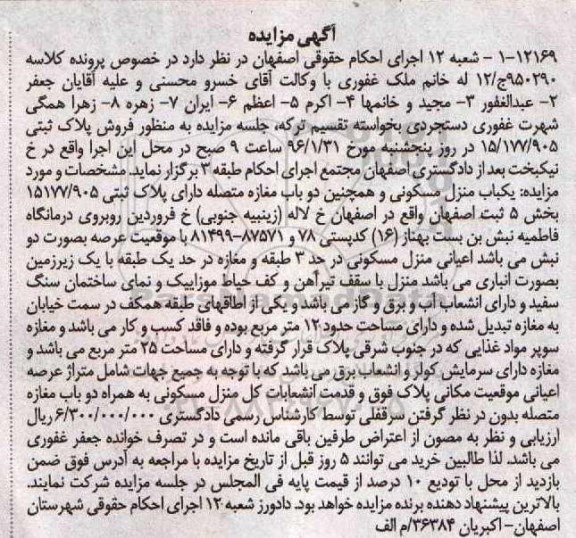 آگهی مزایده
۱۲۱۶۹-۱ - شعبه ۱۲ اجرای احکام حقوقی اصفهان در نظر دارد در خصوص پرونده کلاسه
۹۵۰۲۹۰ج/۱۲ له خانم ملک غفوری با وکالت آقای خسرو محسنی و علیه آقایان جعفر
۲- عبدالغفور ۳- مجید و خانمها ۴- اکرم ۵- اعظم ۶- ایران ۷- زهره ۸- زهرا همگی
شهرت غفوری دستجردی بخواسته تقسیم ترکه، جلسه مزایده به منظور فروش پلاک ثبتی
۱۵/۱۷۷/۹۰۵ در روز پنجشنبه مورخ ۹۶/۱/۳۱ ساعت ۹ صبح در محل این اجرا واقع در خ
نیکبخت بعد از دادگستری اصفهان مجتمع اجرای احکام طبقه ۳ برگزار نماید. مشخصات و مورد
مزایده: یکباب منزل مسکونی و همچنین دو باب مغازه متصله دارای پلاک ثبتی ۱۵۱۷۷/۹۰۵
بخش ۵ ثبت اصفهان واقع در اصفهان خ لاله (زینبیه جنوبی) خ فروردین روبروی درمانگاه
فاطمیه نبش بن بست بهناز (۱۶) کدپستی ۷۸ و ۸۷۵۷۱-۸۱۴۹۹ با موقعیت عرصه بصورت دو
نبش می باشد اعیانی منزل مسکونی در حد ۳ طبقه و مغازه در حد یک طبقه با یک زیرزمین
بصورت انباری می باشد منزل با سقف تیرآهن و کف حیاط موزاییک و نمای ساختمان سنگ
سفید و دارای انشعاب آب و برق و گاز می باشد و یکی از اطاقهای طبقه همکف در سمت خیابان
به مغازه تبدیل شده و دارای مساحت حدود ۱۲ متر مربع بوده و فاقد کسب و کار می باشد و مغازه
سوپر مواد غذایی که در جنوب شرقی پلاک قرار گرفته و دارای مساحت ۲۵ متر مربع می باشد و
مغازه دارای سرمایش کولر و انشعاب برق می باشد که با توجه به جمیع جهات شامل متراژ عرصه
اعیانی موقعیت مکانی پلاک فوق و قدمت انشعابات کل منزل مسکونی به همراه دو باب مغازه
متصله بدون در نظر گرفتن سرقفلی توسط کارشناس رسمی دادگستری ۶/۳۰۰/۰۰۰/۰۰۰ ریال
ارزیابی و نظر به مصون از اعتراض طرفین باقی مانده است و در تصرف خوانده جعفر غفوری
می باشد. لذا طالبین خرید می توانند ۵ روز قبل از تاریخ مزایده با مراجعه به آدرس فوق ضمن
بازدید از محل با تودیع ۱۰ درصد از قیمت پایه فی المجلس در جلسه مزایده شرکت نمایند.
بالاترین پیشنهاد دهنده برنده مزایده خواهد بود. دادورز شعبه ۱۲ اجرای احکام حقوقی شهرستان
اصفهان- اکبریان ۳۶۳۸۴/م الف